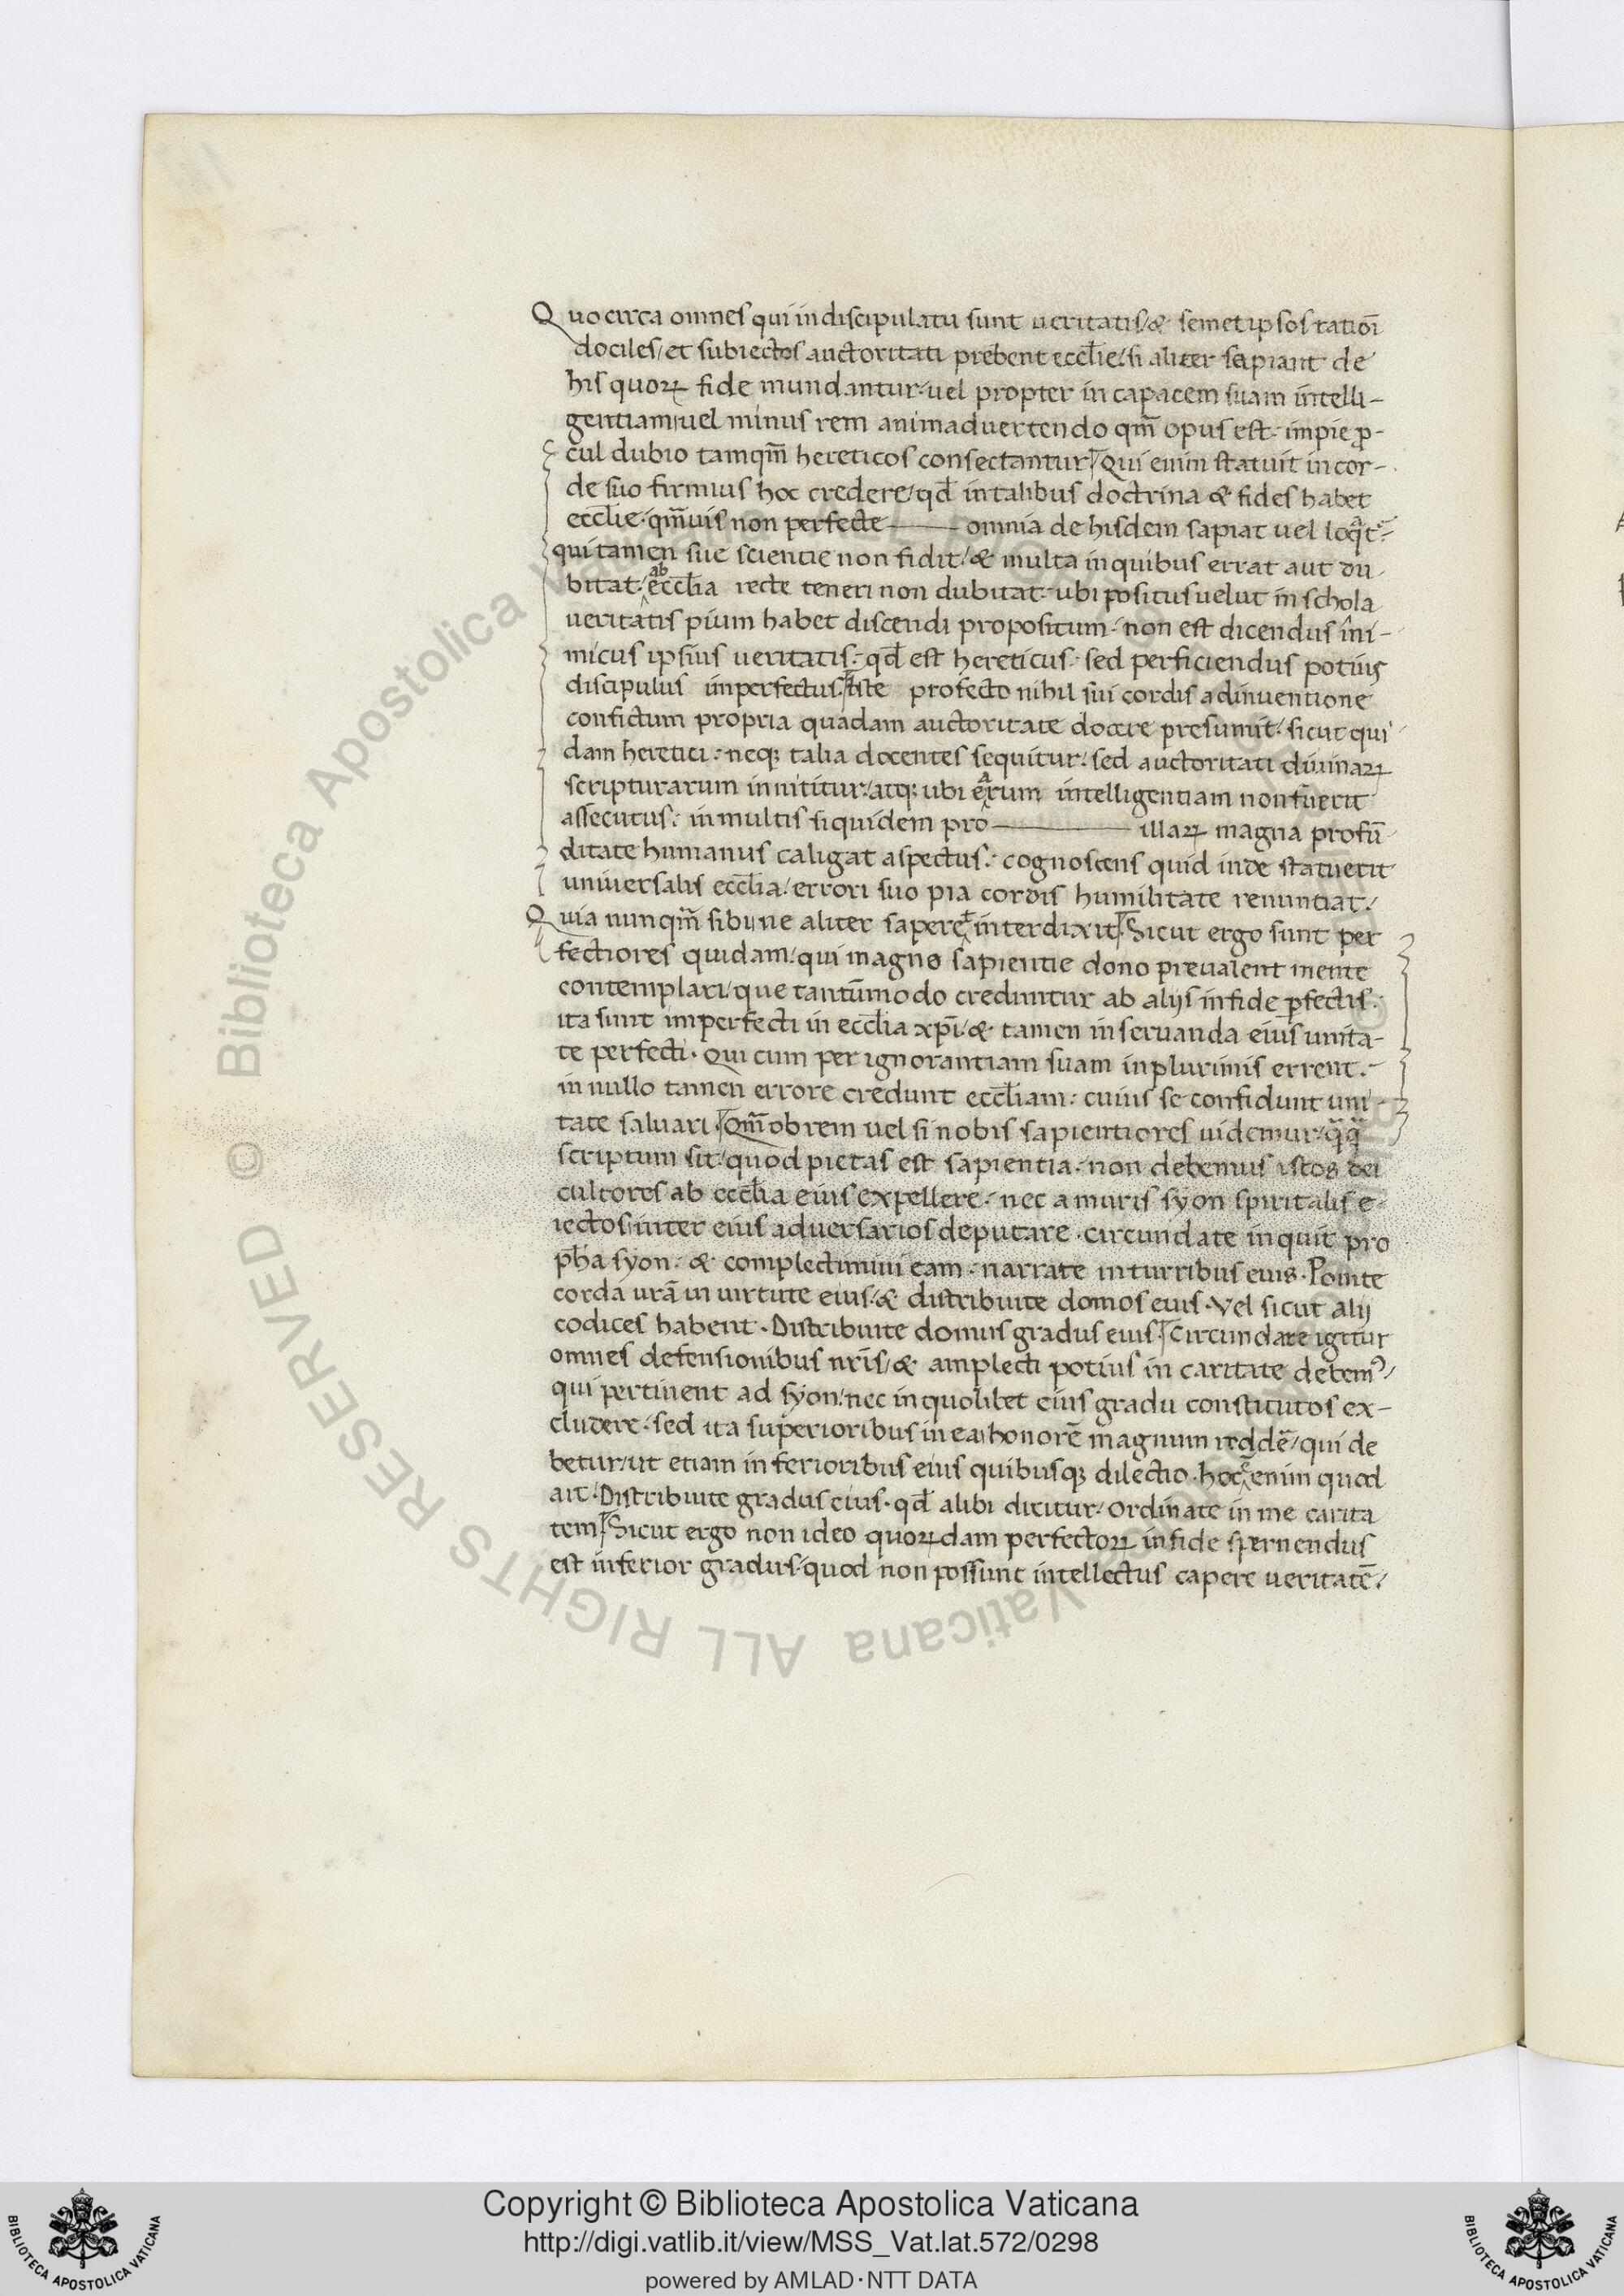 Quocirca omnes qui in discipulatu sunt ueritatis/ & semetipsos rationi
dociles/ et subiectos auctoritati prebent eccl̄ie/ si aliter sapiant de
his quoꝝ fide mundantur/ uel propter in capacem suam intelli-
gentiam/ uel minus rem animaduertendo qm̄ opus est/ impie ꝓ-
cul dubio tamqm̄ hereticos consectantur. Qui enim statuit in cor-
de suo firmius hoc credere/ qd̄ in talibus doctrina & fides habet
eccl̄ie/ qm̄uis non perfecte — omnia de hisdem sapiat uel loqͣt/
qui tamen sue scientie non fidit/ & multa in quibus errat aut du
bitat/ ab eccl̄ia recte teneri non dubitat/ ubi positus uelut in schola
ueritatis pium habet discendi propositum/ non est dicendus ini-
micus ipsius ueritatis/ qd̄ est hereticus/ sed perficiendus potius
discipulus imperfectus. Iste profecto nihil sui cordis adinuentione
confictum propria quadam auctoritate docere presumit/ sicut qui
dam heretici/ neqꝫ talia docentes sequitur/ sed auctoritati diuinaꝝ
scripturarum innititur/ atqꝫ ubi earum intelligentiam non fuerit
assecutus/ in multis siquidem pro — illaꝝ magna profū
ditate humanus caligat aspectus/ cognoscens quid inde statuerit
uniuersalis eccl̄ia/ errori suo pia cordis humilitate renuntiat/
Quia nunqm̄ sibi/ ne aliter saperet interdixit. Sicut ergo sunt per
fectiores quidam/ qui magno sapientie dono preualent mente
contemplari/ que tantūmodo creduntur ab alijs in fide ꝑfectis/
ita sunt imperfecti in eccl̄ia xp̄i/ & tamen in seruanda eius unita-
te perfecti. Qui cum per ignorantiam suam in plurimis errent/
in nullo tamen errore credunt eccl̄iam/ cuius se confidunt uni
tate saluari. Qm̄obrem uel si nobis sapientiores uidemur/ qͣqͣ
scriptum sit/ quod pietas est sapientia/ non debemus istos dei
cultores ab eccl̄ia eius expellere/ nec a muris syon spiritalis e
iectos/ inter eius aduersarios deputare. circundate inquit pro
ph̄a syon/ & complectimini eam/ narrate in turribus eius. Ponite
corda ur̄a in uirtute eius/ & distribuite domos eius. Vel sicut alij
codices habent. Distribuite domus gradus eius. Circundare igitur
omnes defensionibus nr̄is/ & amplecti potius in caritate debemꝰ/
qui pertinent ad syon/ nec in quolibet eius gradu constitutos ex-
cludere/ sed ita superioribus in ea/ honorē magnum reddē/ qui de
betur/ ut etiam inferioribus eius quibusqꝫ dilectio. hoc ē enim quod
ait. Distribuite gradus eius. qd̄ alibi dicitur. Ordinate in me carita
tem. Sicut ergo non ideo quoꝝdam perfectoꝝ in fide spernendus
est inferior gradus/ quod non possunt intellectus capere ueritatē/
© Biblioteca Apostolica Vaticana ALL RIGHTS RESERVED
Copyright © Biblioteca Apostolica Vaticana
http://digi.vatlib.it/view/MSS_Vat.lat.572/0298
powered by AMLAD·NTT DATA
BIBLIOTECA APOSTOLICA VATICANA
BIBLIOTECA APOSTOLICA VATICANA